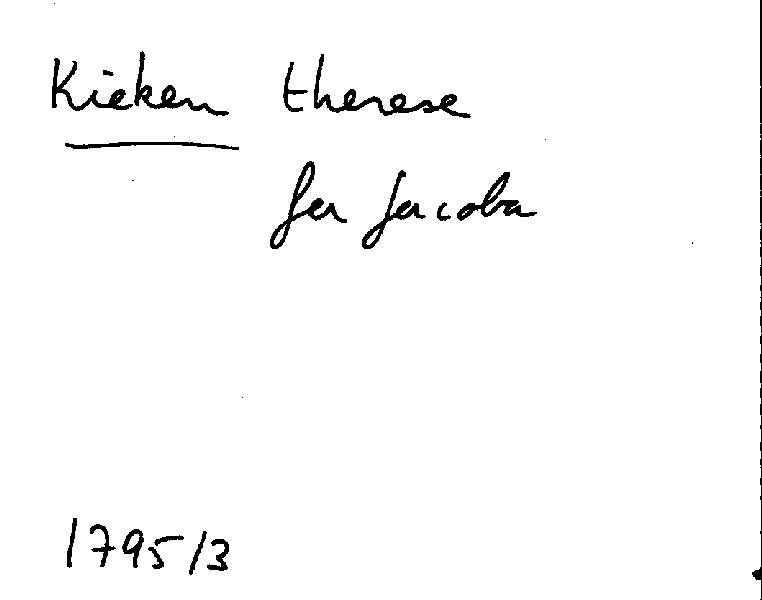 Kieken therese
fa Jacoba
1795/3